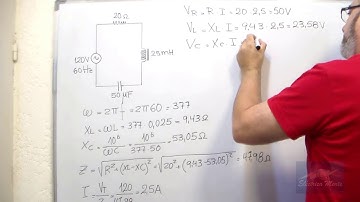 20Ω
120V
60Hz
25mH
50μF
V_R = R I = 20 · 2,5 = 50V
V_L = X_L I = 9,43 · 2,5 = 23,58V
V_C = X_C I
ω = 2π f = 2π60 = 377
X_L = ωL = 377 0,025 = 9,43Ω
X_C = 10⁶/ωC = 10⁶/377·50 = 53,05Ω
Z = √R² + (X_L - X_C)² = √20² + (9,43 - 53,05)² = 47,98Ω
I = V_T/Z = 120/47,98 = 2,5A